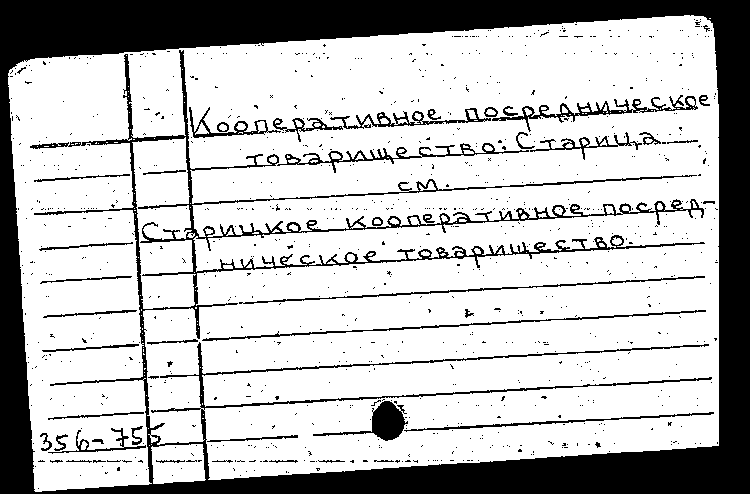 Кооперативное посредническое
товарищество: Старица
см.
Старицкое кооперативное посред-
ническое товарищество.
356-755